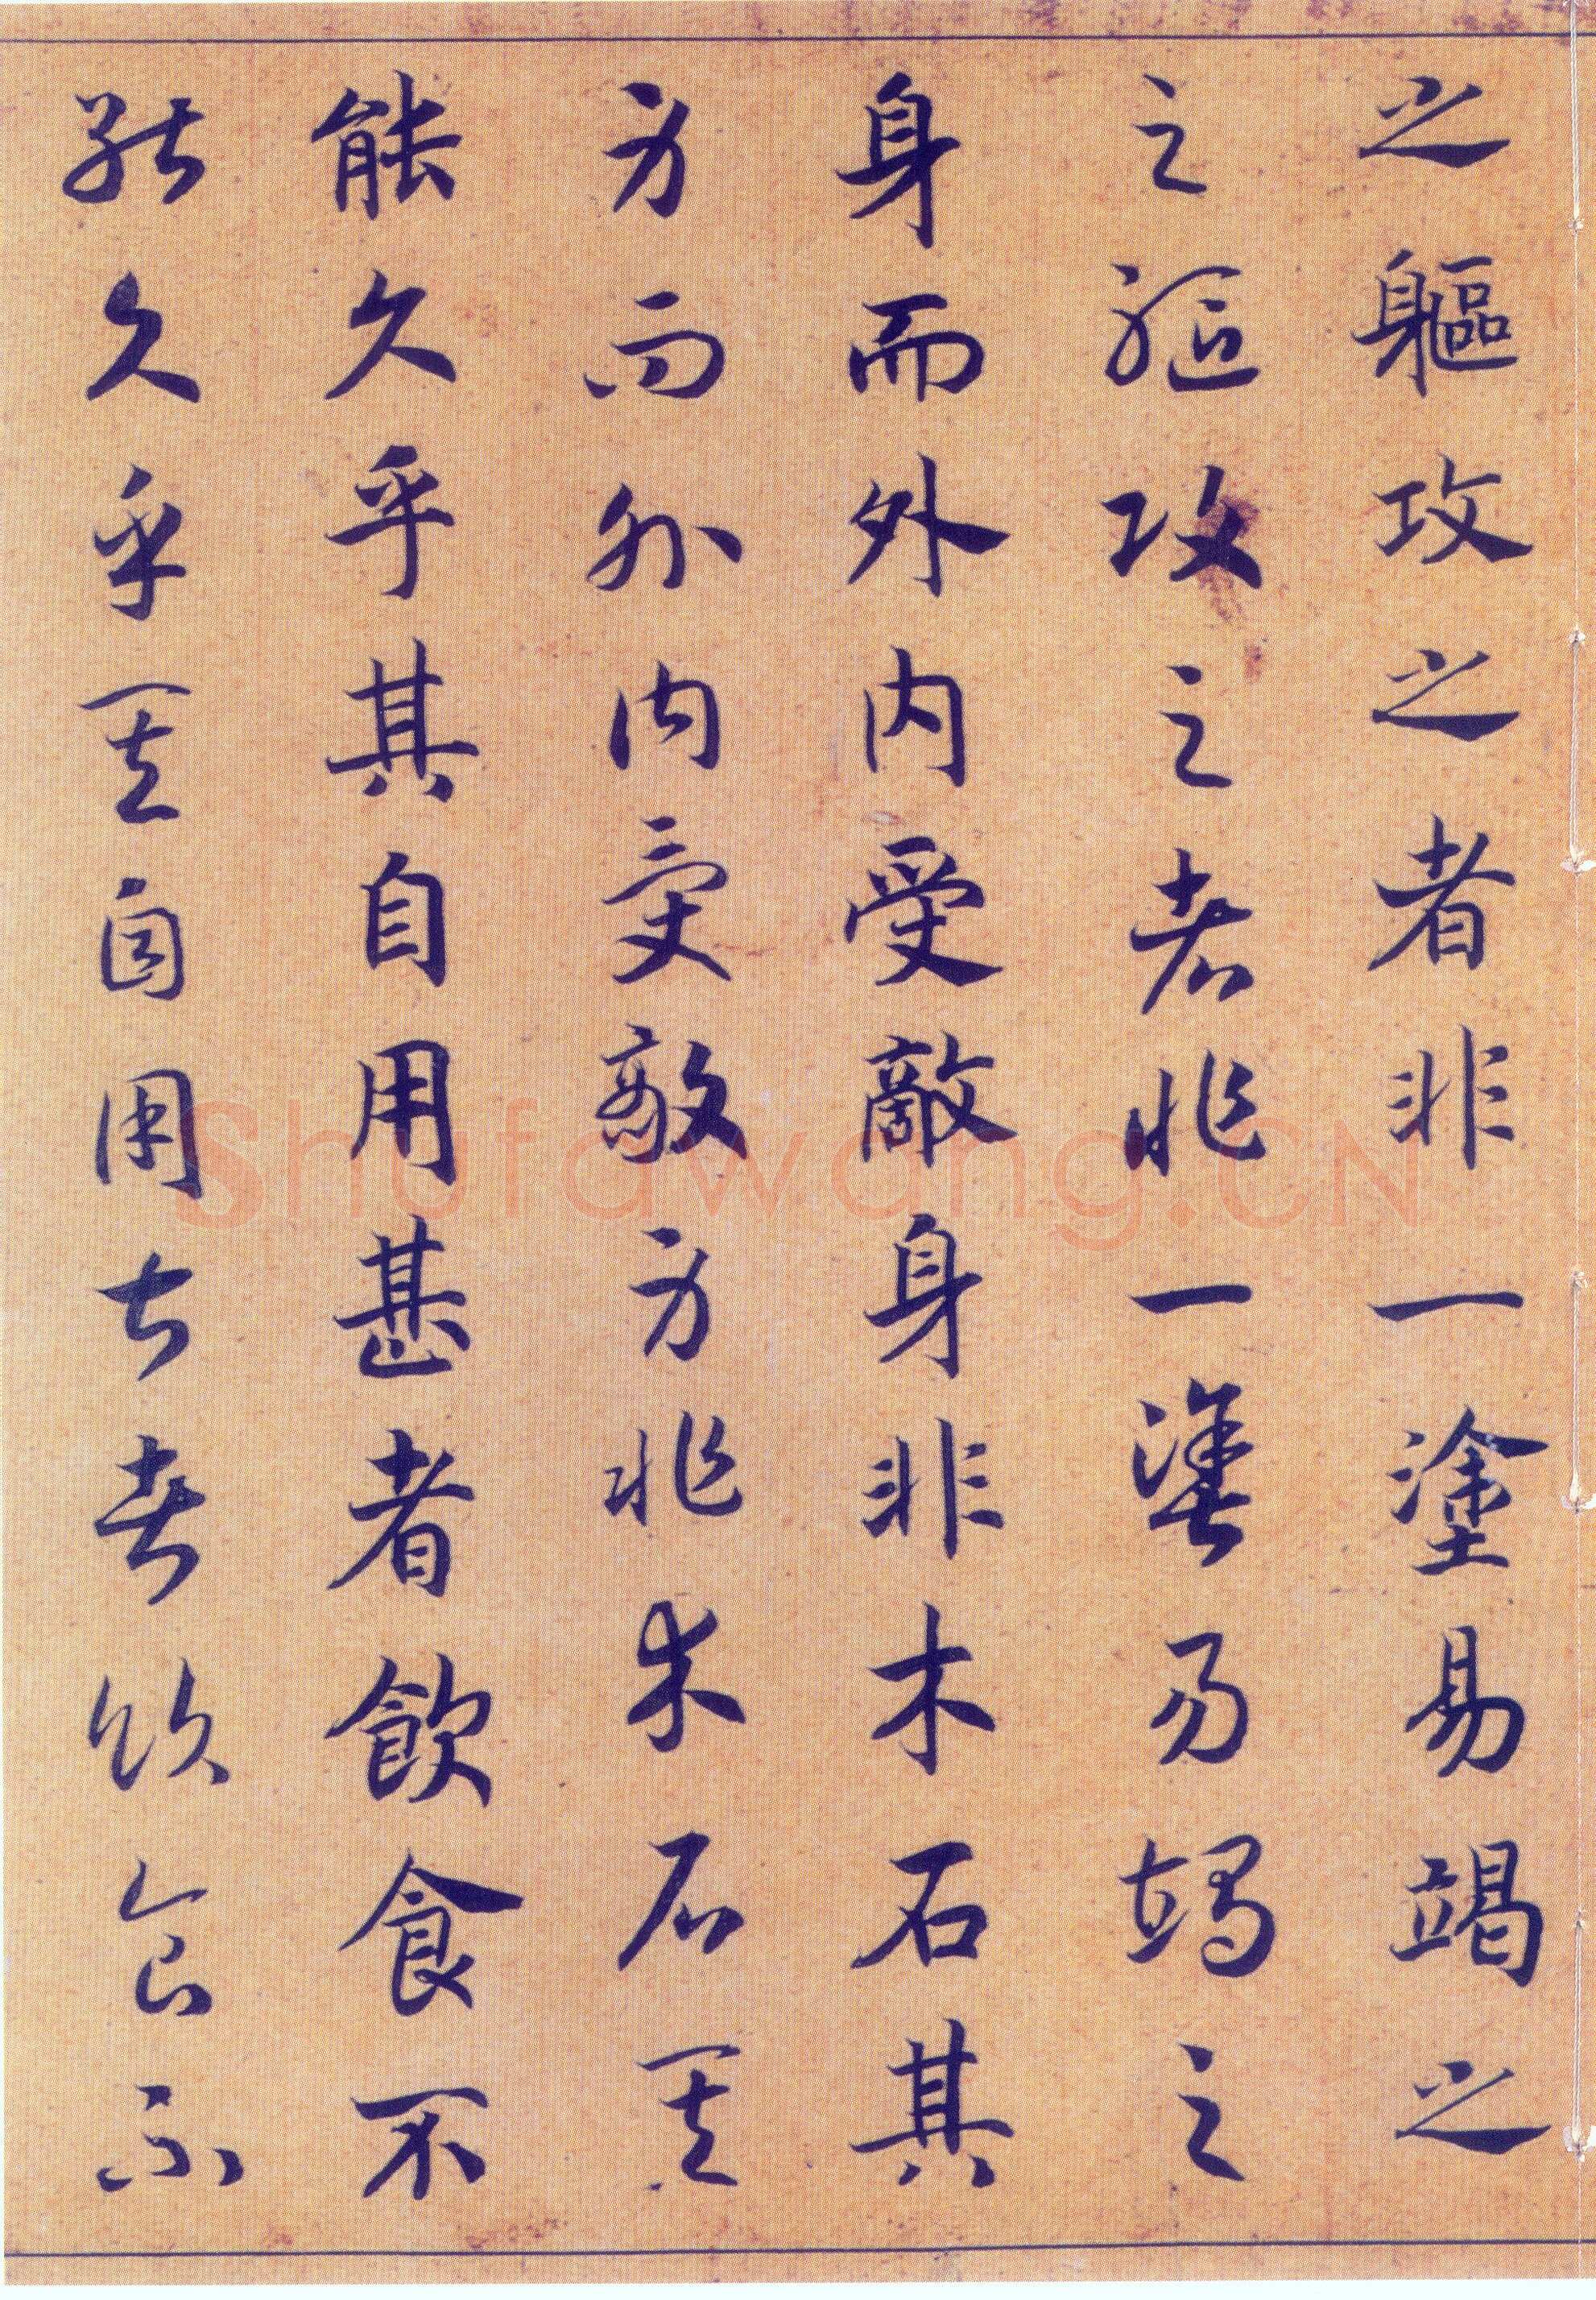 之軀攻之者非一塗易竭之
之軀攻之者非一塗易竭之
身而外内受敵身非木石其
身而外内受敵身非木石其
能久乎其自用甚者飲食不
能久乎其自用甚者飲食不
Shufawang.CN